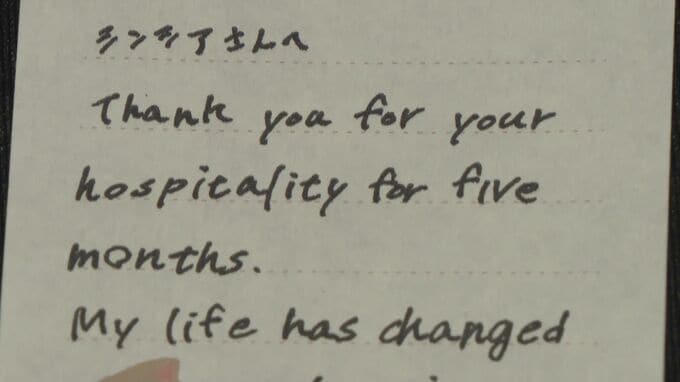 シンシアさんへ
Thank you for your
hospitality for five
months.
My life has changed